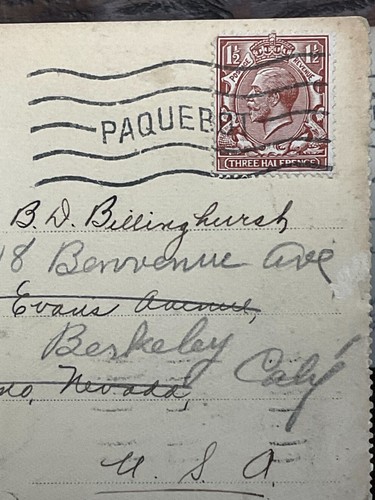 1½ 1½
POSTAGE REVENUE
PAQUEBOT
THREE HALFPENCE
B. D. Billinghurst
8 Benvenue Ave
Evans Avenue,
Berkeley
no, Nevada, Calif
U. S. A.